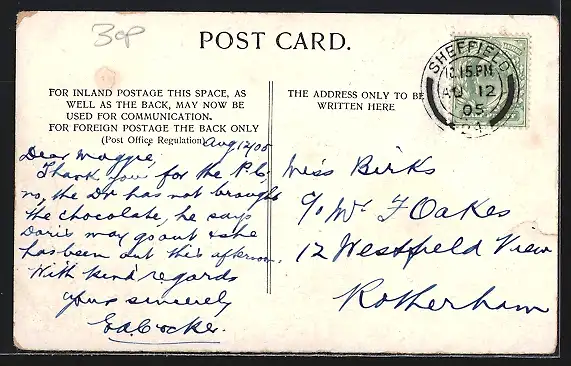 30p
POST CARD.
FOR INLAND POSTAGE THIS SPACE, AS
WELL AS THE BACK, MAY NOW BE
USED FOR COMMUNICATION.
FOR FOREIGN POSTAGE THE BACK ONLY
(Post Office Regulation)
Aug 12/05
Dear Maggie,
Thank you for the P.C.
no, the Dr has not brought
the chocolate, he says
Doris may go out & she
has been out this afternoon.
With kind regards
yours sincerely
THE ADDRESS ONLY TO BE
WRITTEN HERE
SHEFFIELD
10.15 PM
AU 12
05
Miss Birks
c/o Mr F Oakes
12 Westfield View
Rotherham